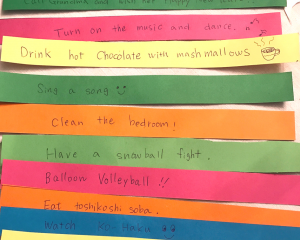 Turn on the music and dance.
Drink hot Chocolate with mashmallows
Sing a song
Clean the bedroom!
Have a snowball fight.
Balloun Volleyball!!
Eat toshikoshi soba.
Watch